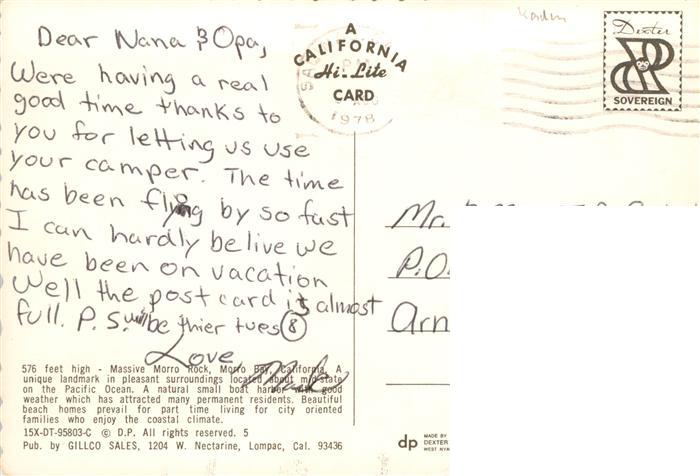 Dear Nana & Opa,
Were having a real
good time thanks to
you for letting us use
your camper. The time
has been flying by so fast
I can hardly belive we
have been on vacation
Well the post card is almost
full. P.S. will be thier tues 8
Love,
A
CALIFORNIA
Hi-Lite
CARD
1978
Dexter
SOVEREIGN
Mr.
P.O.
Arn
576 feet high - Massive Morro Rock, Morro Bay, California. A
unique landmark in pleasant surroundings located about mid-state
on the Pacific Ocean. A natural small boat harbor with good
weather which has attracted many permanent residents. Beautiful
beach homes prevail for part time living for city oriented
families who enjoy the coastal climate.
15X-DT-95803-C © D.P. All rights reserved. 5
Pub. by GILLCO SALES, 1204 W. Nectarine, Lompac, Cal. 93436
dp MADE BY
DEXTER
WEST NYA